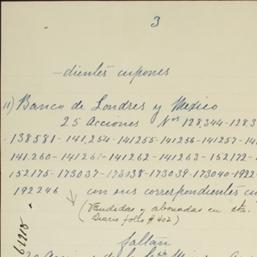 3
-dientes cupones
11) Banco de Londres y Mexico
25 Acciones Nos 128,344-128,3
-138581-141,254-141255-141256-141257-14
141,260-141261-141262-141263-152172-
152175-173037-173038-173039-173040-192
192246 con sus correspondientes cu
(Vendidas y abonadas en cta.
Diario folio # 402)
faltan